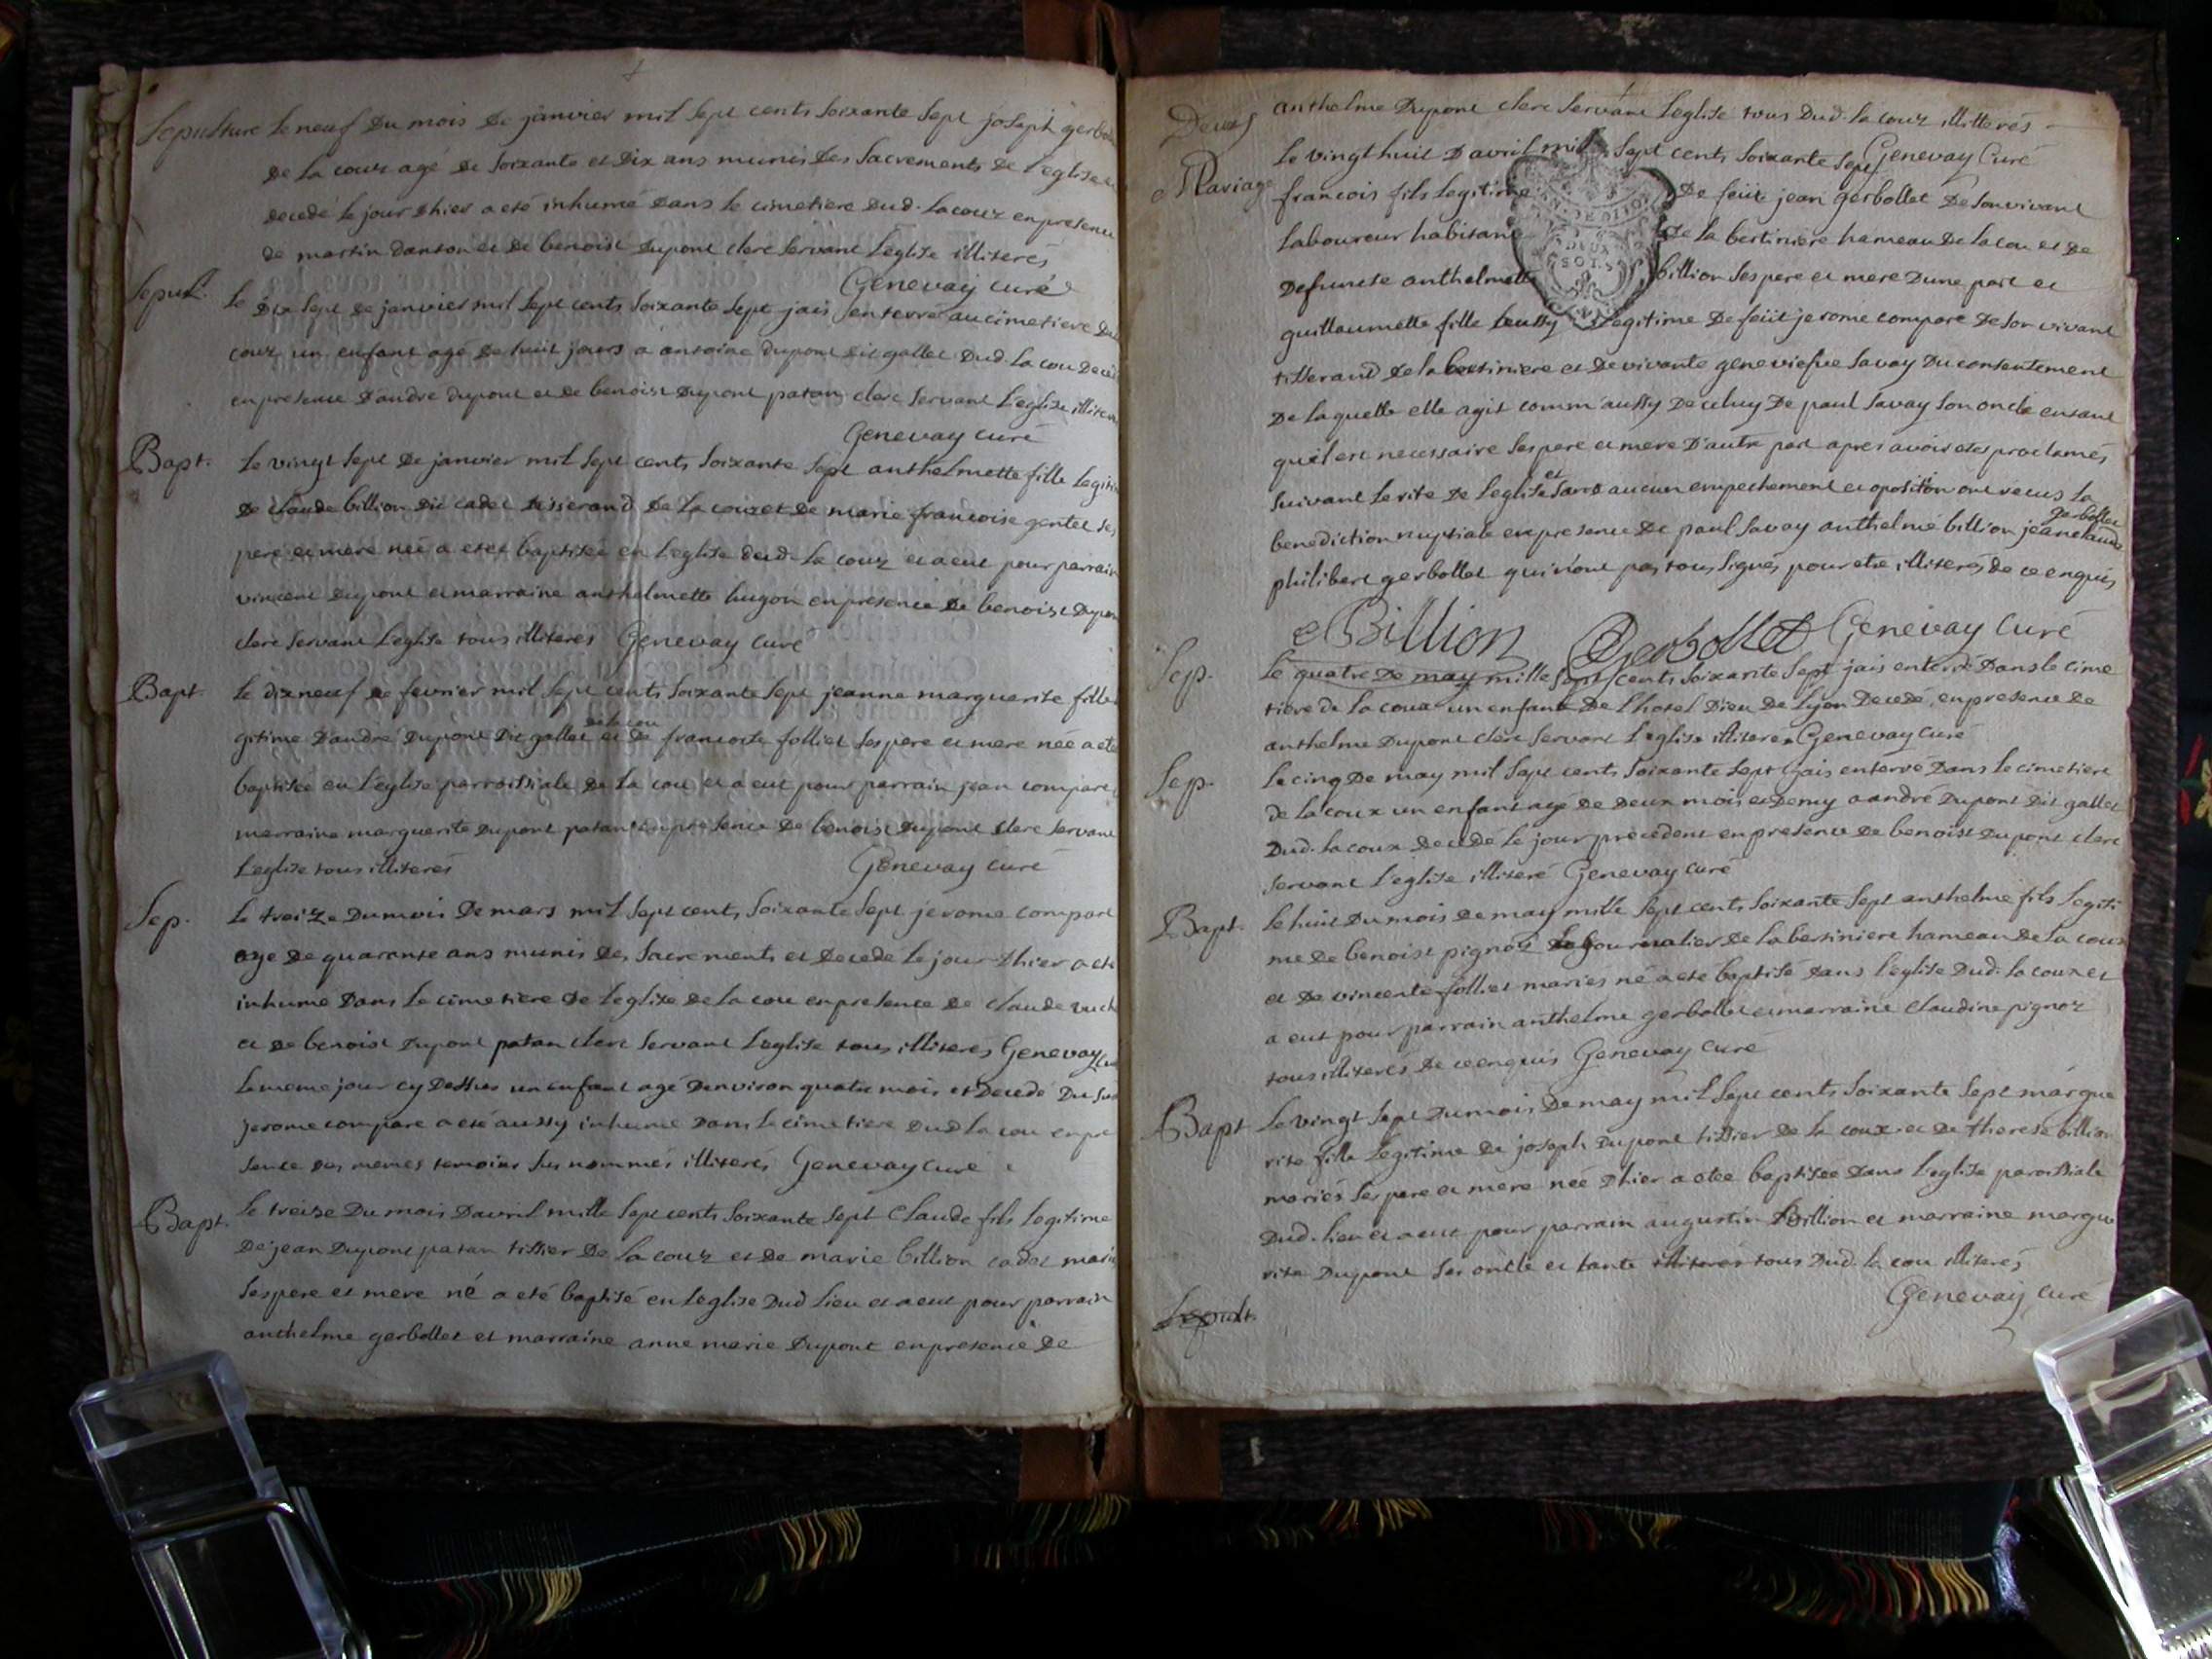 Sepulture le neuf du mois de janvier mil sept cents soixante sept joseph
de la couz agé de soixante et dix ans munis des sacrements de l'eglise
decedé le jour d'hier a eté inhumé dans le cimetiere dud. la couz en presence
de martin danton et de benoist dupont clerc servant l'eglise illiterés
Genevay curé
Sepul. le dix sept de janvier mil sept cents soixante sept jais enterré au cimetiere
couz un enfant agé de huit jours a antoine dupont dit gallet dud. la cou
en presence d'andre dupont et de benoist dupont patan clerc servant l'eglise
Genevay curé
Bapt. le vingt sept de janvier mil sept cents soixante sept anthelmette fille
de claude billion dit cadet tisserand de la couz et de marie francoise gentet
pere et mere née a eteé baptisée en l'eglise dud. la couz et a eut pour parrain
vincent dupont et marraine anthelmette hugon en presence de benoist
clerc servant l'eglise tous illiterés Genevay curé
Bapt. le dixneuf de fevrier mil sept cents soixante sept jeanne marguerite fille
de la cou
gitime d'andré dupont dit gallet et de francoise folliet ses pere et mere née a eté
baptisée en l'eglise parroissiale de la cou et a eut pour parrain jean compare
marraine marguerite dupont patan en presence de benoist dupont clerc servant
l'eglise tous illiterés Genevay curé
Sep. le treize du mois de mars mil sept cents soixante sept jerome
age de quarante ans munis des sacrements et decede le jour d'hier a eté
inhume dans le cimetiere de l'eglise de la cou en presence de claude
et de benoist dupont patan clerc servant l'eglise tous illiterés Genevay
le meme jour cy dessus un enfant agé d'environ quatre mois et decedé
jerome compare a eté aussy inhumé dans le cimetiere dud la cou en pre
sence des memes temoins sus nommés illiterés Genevay curé
Bapt. le treise du mois d'avril mille sept cents soixante sept claude fils legitime
de jean dupont patan tissier de la couz et de marie billion cadet
ses pere et mere né a eté baptisé en l'eglise dud lieu et a eut pour parrain
anthelme gerbollet et marraine anne marie dupont en presence de
anthelme dupont clerc servant l'eglise tous dud. la couz illiterés
Genevay Curé
Mariage le vingt huit d'avril mil sept cents soixante sept
francois fils legitime de feüe jean gerbollet de son vivant
laboureur habitant de la bertiniere hameau de la cou et de
defuncte anthelmette billion ses pere et mere d'une part et
guillaumette fille aussy legitime de feüe jerome compare de son vivant
tisserand de la bertiniere et de vivante geneviefve savay du consentement
de laquelle elle agit comm'aussy de celuy de paul savay son oncle entant
quil est necessaire ses pere et mere d'autre part apres avoir etes proclamés
suivant le rite de l'eglise et sans aucun empechement et oposition ont recus la
gerbollet
benediction nuptiale en presence de paul savay anthelme billion jean claude
philibert gerbollet qui n'ont pas tous signés pour etre illiterés de ce enquis
Billion Gerbollet Genevay Curé
Sep. le quatre de may mille sept cents soixante sept jais enterré dans le cime
tiere de la couz un enfant de l'hotel dieu de lyon decedé, en presence de
anthelme dupont clerc servant l'eglise illiteré Genevay curé
Sep. le cinq de may mil sept cents soixante sept jais enterré dans le cimetiere
de la coux un enfant agé de deux mois et demy a andré dupont dit gallet
dud. la coux decedé le jour precedent en presence de benoist dupont clerc
servant l'eglise illiteré Genevay curé
Bapt. le huit du mois de may mille sept cents soixante sept anthelme fils legiti
me de benoist pignoz journalier de la bertiniere hameau de la couz
et de vincente folliet maries né a eté baptisé dans l'eglise dud. la couz et
a eut pour parrain anthelme gerbollet et marraine claudine pignoz
tous illiterés de ce enquis Genevay curé
Bapt. le vingt sept du mois de may mil sept cents soixante sept margue
rite fille legitime de joseph dupont tissier de la coux et de therese billion
mariés ses pere et mere née d'hier a eteé baptisée dans l'eglise paroissiale
dud. lieu et a eut pour parrain augustin Billion et marraine margue
rite dupont ses oncle et tante tous dud. la cou illiterés
Genevay curé